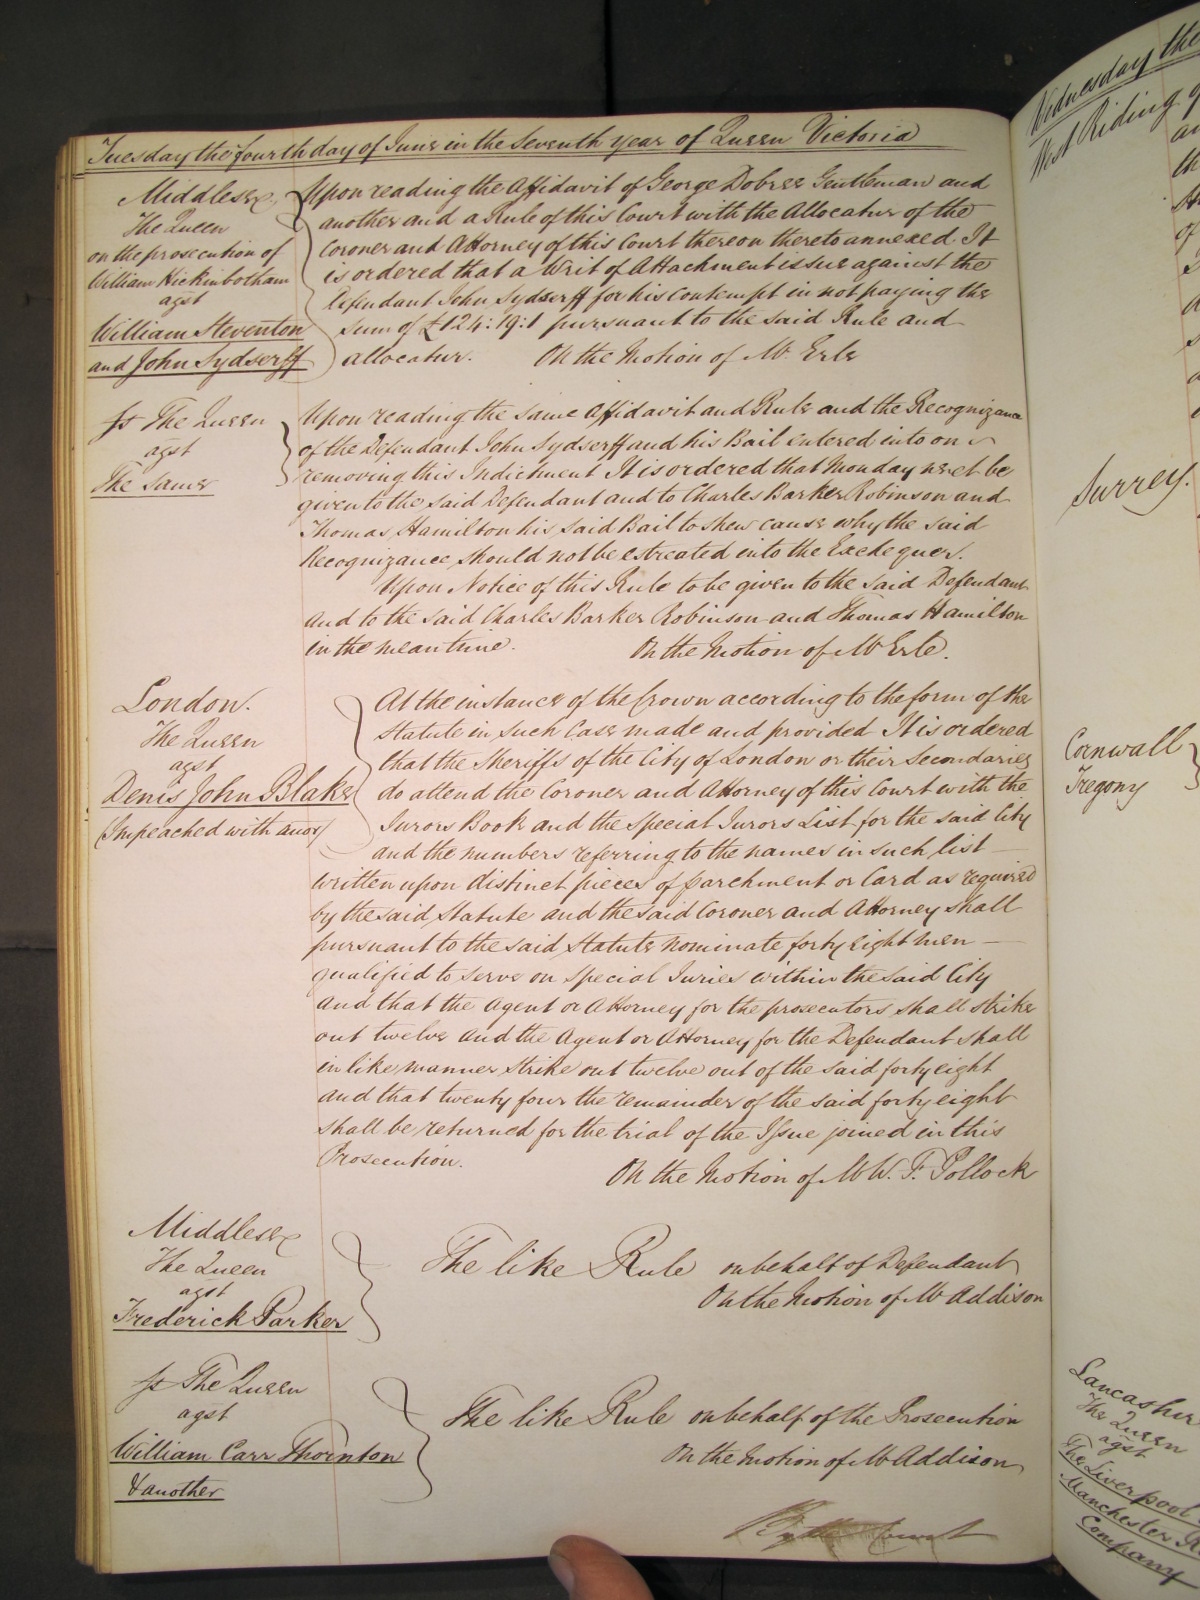 Tuesday the fourth day of June in the Seventh year of Queen Victoria
Middlesex
The Queen
on the prosecution of
William Hickinbotham
agst
William Steventon
and John Sydserff
Upon reading the Affidavit of George Dobree Gentleman and
another and a Rule of this Court with the Allocatur of the
Coroner and Attorney of this Court thereon thereto annexed It
is ordered that a Writ of Attachment issue against the
Defendant John Sydserff for his Contempt in not paying the
sum of £124:19:1 pursuant to the said Rule and
allocatur. On the Motion of Mr. Erle
The Queen
agst
The Same
Upon reading the same Affidavit and Rule and the Recognizance
of the Defendant John Sydserff and his Bail entered into on
removing this Indictment It is ordered that Monday next be
given to the said Defendant and to Charles Barker Robinson and
Thomas Hamilton his said Bail to shew cause why the said
Recognizance should not be estreated into the Exchequer.
Upon Notice of this Rule to be given to the said Defendant
and to the said Charles Barker Robinson and Thomas Hamilton
in the meantime. On the Motion of Mr Erle.
London.
The Queen
agst
Denis John Blake
(Impeached with anor)
At the instance of the Crown according to the form of the
Statute in such Case made and provided It is ordered
that the Sheriffs of the City of London or their Secondaries
do attend the Coroner and Attorney of this Court with the
Jurors Book and the Special Jurors List for the said City
and the numbers referring to the names in such list
written upon distinct pieces of parchment or Card as required
by the said Statute and the said Coroner and Attorney shall
pursuant to the said Statute nominate forty eight men
qualified to serve on Special Juries within the said City
and that the Agent or Attorney for the prosecutors shall strike
out twelve and the Agent or Attorney for the Defendant shall
in like manner strike out twelve out of the said forty eight
and that twenty four the remainder of the said forty eight
shall be returned for the trial of the Issue joined in this
Prosecution. On the Motion of Mr W. F. Pollock
Middlesex
The Queen
agst
Frederick Parker
The like Rule on behalf of Defendant
On the Motion of Mr Addison
The Queen
agst
William Carr Thornton
& another
The like Rule on behalf of the Prosecution
On the Motion of Mr Addison
By the Court
Wednesday the
West Riding
Surrey.
Cornwall
Tregony
Lancashire
The Queen
agst
The Liverpool
Manchester
Company